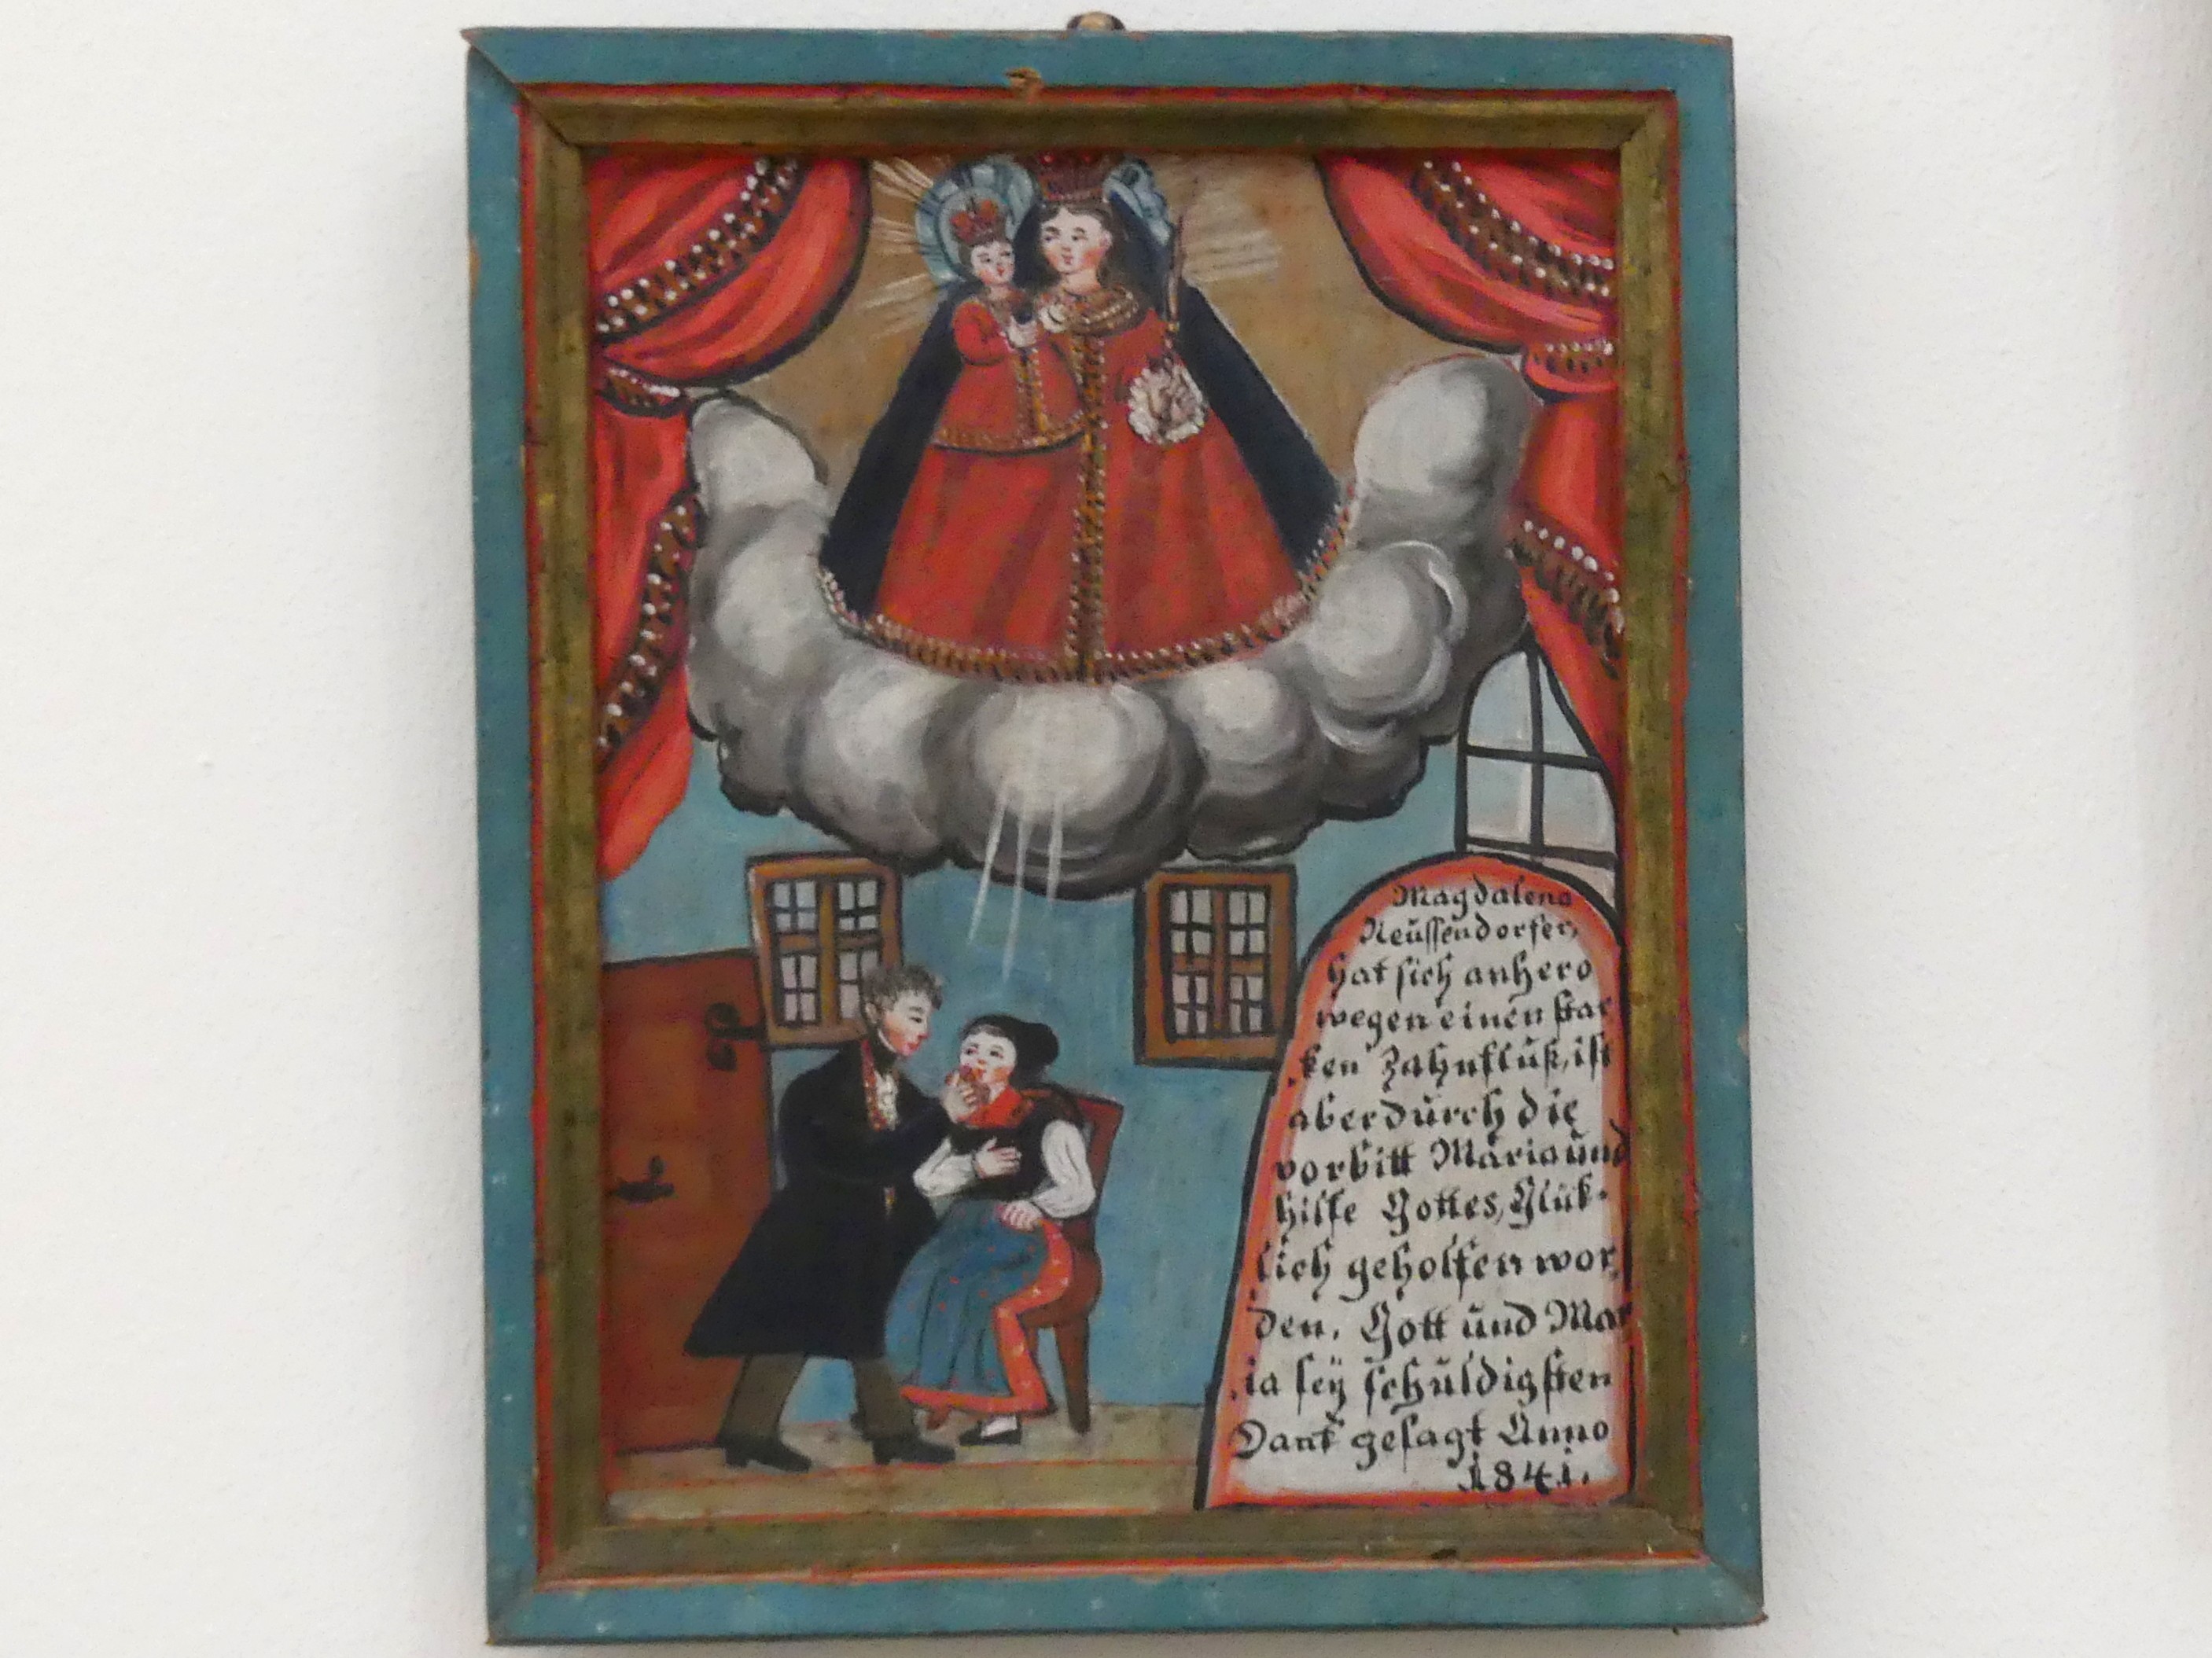 Magdalena
Neüssendorfer,
hat sich anhero
wegen einen star
,ken Zahnflüß, ist
aber dürch die
vorbitt Maria ünd
hilfe Gottes, Glük-
lich geholfen wor,
den, Gott ünd Mar
,ia seÿ schüldigsten
Dank gesagt Anno
1841.